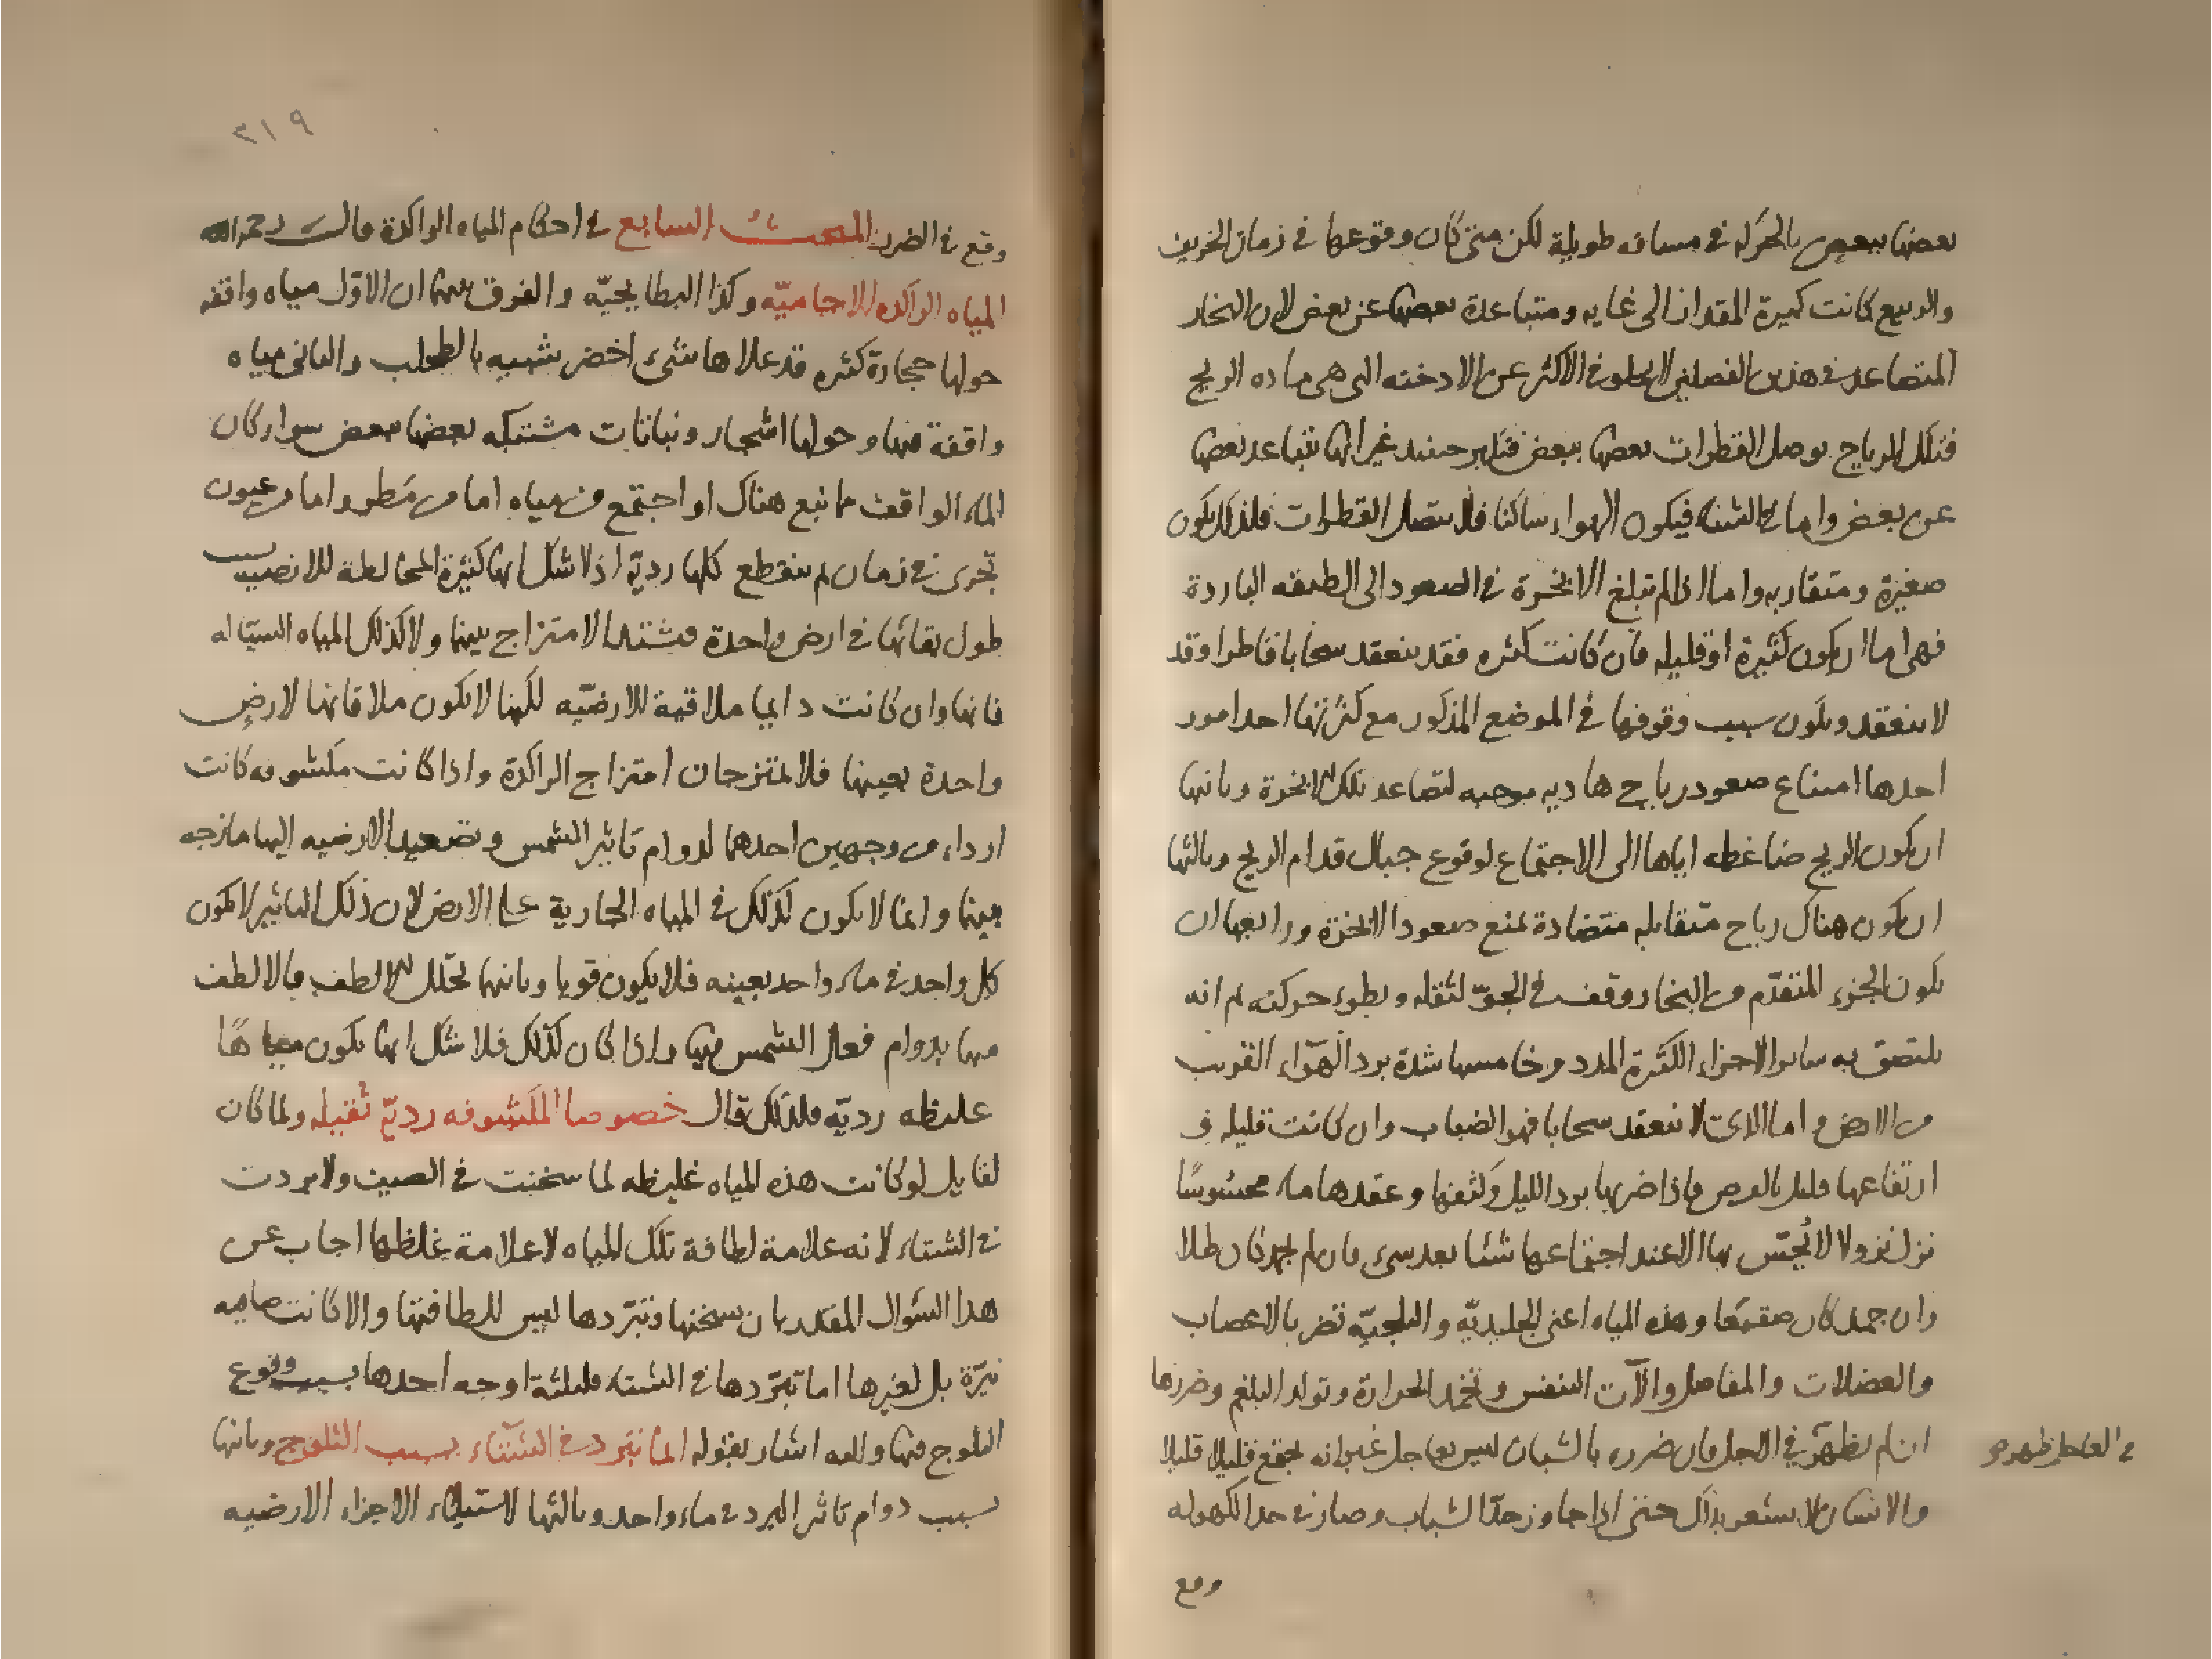 بعضها ببعض بالحركه في مسافه طويلة لكن متى كان وقوعها في زمان الخريف
والربيع كانت كبيرة المقدار الى غايه ومتباعدة بعضها عن بعض لان البخار
المتصاعد في هذين الفصلين لا يخلو في الاكثر عن الادخنه التى هى ماده الريح
فتلك الرياح توصل القطرات بعضها ببعض فتكبر حينئذ غير انها تتباعد بعضها
عن بعض واما في الشتاء فيكون الهواء ساكنا فلا تتصل القطرات فلذلك يكون
صغيرة ومتقاربه واما اذا لم تبلغ الابخرة في الصعود الى الطبقه الباردة
فهى اما ان يكون كثيرة او قليله فان كانت كثيره فقد ينعقد سحابا قاطرا وقد
لا ينعقد ويكون سبب وقوفها في الموضع المذكور مع كثرتها احد امور
احدها امتناع صعود رياح هاديه موجبه لتصاعد تلك الابخرة وثانيها
ان يكون الريح ضاغطه اياها الى الاجتماع لوقوع جبال قدام الريح وثالثها
ان يكون هناك رياح متقابله متضادة تمنع صعود الابخرة ورابعها ان
يكون الجزء المتقدم من البخار وقف في الجوّ لثقله وبطوء حركته ثم انه
يلتصق به سائر الاجزاء الكثيرة المدد وخامسها شدة برد الهوآء القريب
من الارض واما الذى لا ينعقد سحابا فهو الضباب وان كانت قليله في
ارتفاعها قليل بالعرض فاذا ضربها برد الليل وكثفها وعقدها ماء محسوسًا
نزل نزولا لا يُحسّ بها الا عند اجتماعها شئا بعد شىء فان لم يجمد كان طلا
وان جمد كان صقيعا وهذه المياه اعنى الجليديّه والثلجيّه تضر بالاعصاب
والعضلات والمفاصل وآلآت التنفس وتخمد الحرارة وتولد البلغم وضررها
ان لم يظهر في الاجل فان ضرره بالشبان ليس بعاجل غير انه يجتمع قليلا قليلا
في العاجل ظهر في
والانسان لا يستعر بذلك حتى اذا جاوز حدّ الشباب وصار في حد الكهوله
وقع
٣١٩
وقع في الضرر المبحث السابع في احكام المياه الراكدة قال رحمه الله
المياه الراكده الاجاميّه وكذا البطايحيّه والفرق بينهما ان الاول مياه واقفه
حولها حجارة كثيره قد علاها شىء اخضر شبيه بالطحلب والثانى مياه
واقفة فيها وحولها اشجار ونباتات مشتبكه بعضها ببعض سواء كان
الماء الواقف مما نبع هناك او اجتمع من مياه اما من مطر واما من عيون
تجرى في زمان ثم ينقطع كلها رديّه اذ لا شك انها كثيرة المخالطة للارض بسبب
طول بقائها في ارض واحدة فيشتد الامتزاج بينهما ولا كذلك المياه السيّاله
فانها وان كانت دايما ملاقية للارضيّه لكنها لا يكون ملاقاتها لارض
واحدة بعينها فلا يمتزجان امتزاج الراكدة واذا كانت مكشوفه كانت
اردا من وجهين احدهما لدوام تاثير الشمس وتصعيد الارضيه اليها مازجه
بينهما وانما لا يكون كذلك في المياه الجارية على الارض لان ذلك التاثير لا يكون
كل واحد في ماء واحد بعينه فلا يكون قويا وثانيها تحلل الالطف فالالطف
منها بدوام فعل الشمس فيها واذا كان كذلك فلا شك انها يكون مياهًا
غليظه رديّه فلذلك قال خصوصا المكشوفه رديّه ثقيله ولما كان
لقايل لو كانت هذه المياه غليظه لما سخنت في الصيف ولا بردت
في الشتاء لانه علامة لطافة تلك المياه لا علامة غلظها اجاب عن
هذا السؤال المقدر بان سخنها وتبرّدها ليس للطافتها والا كانت صافيه
نيّرة بل لغيرها اما تبرّدها في الشتاء فلثلثة اوجه احدها بسبب وقوع
الثلوج فيها واليه اشار بقوله انما تبرد في الشتاء بسبب الثلوج وثانيها
بسبب دوام تاثير البرد في ماء واحد وثالثها لاستيلاء الاجزاء الارضيه